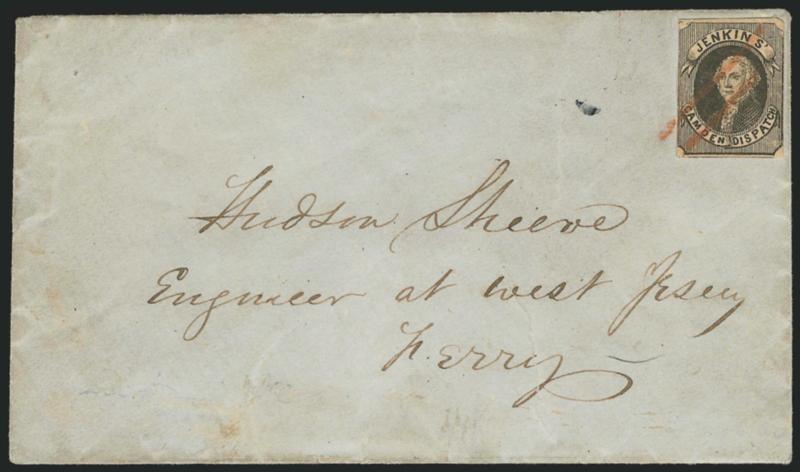 JENKINS'
CAMDEN DISPATCH
Hudson Sheeve
Engineer at west Jersey
Ferry